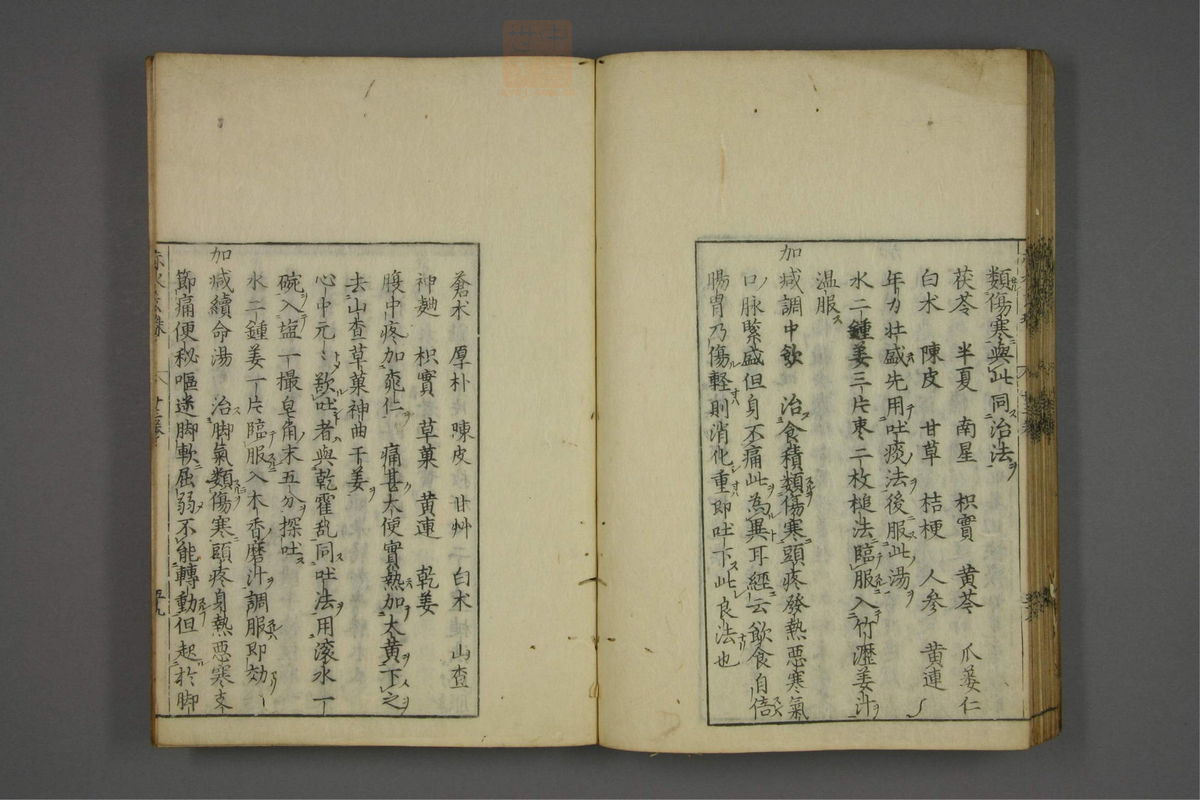 類傷寒與此同治法
茯苓 半夏 南星 枳實 黄芩 瓜蔞仁
白术 陳皮 甘草 桔梗 人参 黄連
年力壮盛先用吐痰法後服此湯
水二鍾姜三片枣二枚槌法臨服入竹瀝姜汁
温服
加减調中飲 治食積類傷寒頭疼發熱悪寒氣
口脉緊盛但身不痛此為異耳經云飲食自倍
腸胃乃傷軽則消化重即吐下此良法也
蒼术 厚朴 陳皮 甘艸 白术 山查
神麯 枳實 草菓 黄連 乾姜
腹中疼加桃仁 痛甚大便實熱加大黄下之
去山查草菓神曲干姜
心中兀〻欲吐者與乾霍乱同吐法用滚水一
碗入塩一撮皂角末五分探吐
水二鍾姜一片臨服入木香磨汁調服即効
加减續命湯 治脚氣類傷寒頭疼身熱悪寒支
節痛便秘嘔逆脚軟屈弱不能轉動但起於脚